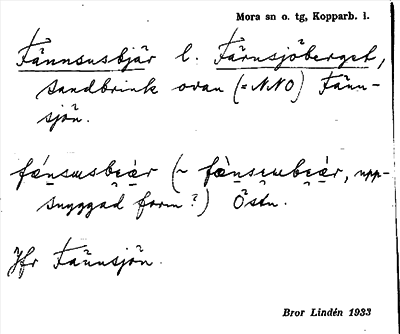 Mora sn o. tg, Kopparb. l.
Fännsusbjär l. Färnsjöberget,
sandbrink ovan (= NNO) Fänn-
sjön.
(~ upp-
snyggad form?) Östn.
Jfr Fännsjön.
Bror Lindén 1933